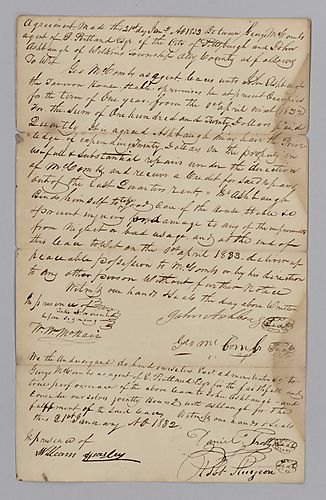 Agreement Made this 31st day Jany AD 1832 Between George McCombs
agent of E Pentland Esqr of the City of Pittsburgh and John
Ashbaugh of Wilkins township Alg County as follows
To Wit
Geo McCombs as agent leases unto John Ashbaugh
the Tavern House stable & premises he at present Occupies
for the term of One year from the 1st april next (1832)
For the Sum of One hundred and Twenty Dollars paid
Quarterly It is agreed Ashbaugh may have the Privi
ledge of expending Twenty Dollars on the property in
usefull & Substantial repairs under the direction
of McCombs and receive a Credit for said repairs
out of the last Quarters rent Mr Ashbaugh
Binds himself to take good Care of the House stable &c
prevent injury or damage to any of the improvements
from Neglect or bad usage and at the end of
this lease To Wit on the 1st april 1833 deliver up
peaceable possession to McCombs or by his direction
to any other person Without further Notice
Witness our hands & Seals the day above Written
In presence of
before signing
John Ashbaugh Seal
Wm McNair
Geo McCombs Seal
We the Undersigned do bind ourselves to
George McCombs as agent of E Pentland Esqr for the faithfull
performance of the above lease to John Ashbaugh and
Consider ourselves jointly Bound with Ashbaugh for the
fulfilment of the said lease Witness our hands & Seals
this 31st January AD 1832
In presence of
Daniel Seal
William
Robt Sturgeon